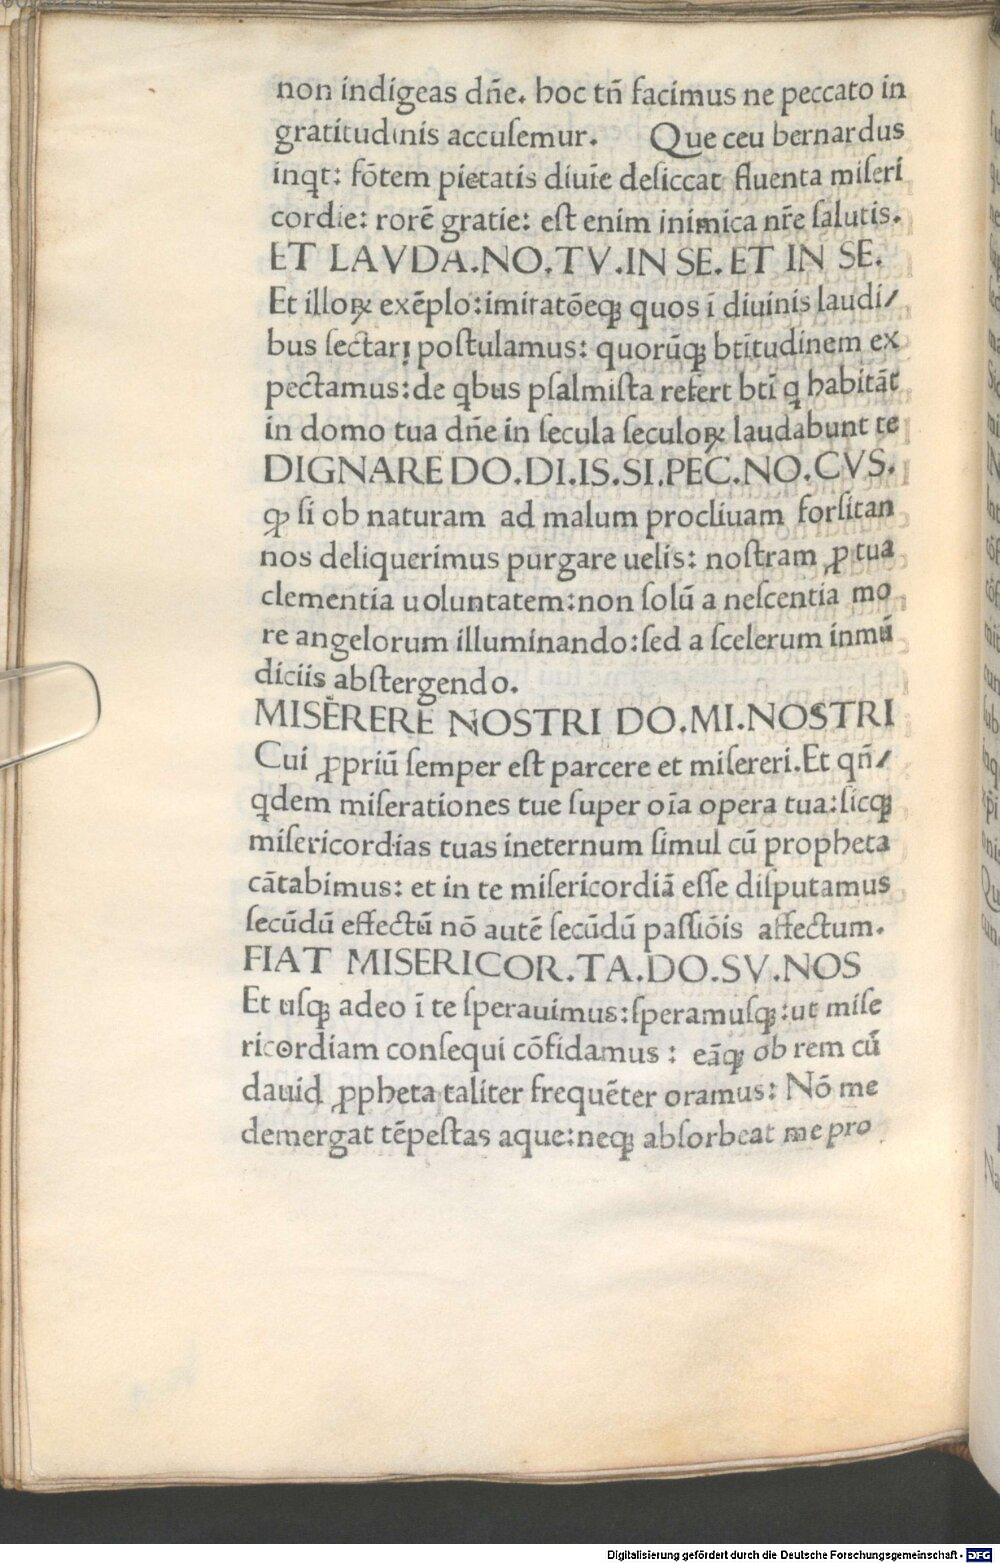 non indigeas dn̄e. hoc tn̄ facimus ne peccato in
gratitudinis accuſemur. Que ceu bernardus
inqt: fōtem pietatis diuīe deſiccat fluenta miſeri
cordie: rorē gratie: eſt enim inimica nr̄e ſalutis.
ET LAVDA.NO.TV.IN SE.ET IN SE.
Et illoꝝ exēplo:imitatōeqꝫ quos ī diuinis laudi/
bus ſectari poſtulamus: quorūqꝫ btītudinem ex
pectamus:de qbus pſalmiſta refert btī q habitāt
in domo tua dn̄e in ſecula ſeculoꝝ laudabunt te
DIGNARE DO.DI.IS.SI.PEC.NO.CVS.
ꝙ ſi ob naturam ad malum procliuam forſitan
nos deliquerimus purgare uelis: noſtram ꝓ tua
clementia uoluntatem:non ſolū a neſcentia mo
re angelorum illuminando:ſed a ſcelerum inmū
diciis abſtergendo.
MISERERE NOSTRI DO.MI.NOSTRI
Cui ꝓpriū ſemper eſt parcere et miſereri.Et qn̄/
qdem miſerationes tue ſuper oīa opera tua:ſicqꝫ
miſericordias tuas ineternum ſimul cū propheta
cātabimus: et in te miſericordiā eſſe diſputamus
ſecūdū effectū nō autē ſecūdū paſſiōis affectum.
FIAT MISERICOR.TA.DO.SV.NOS
Et uſqꝫ adeo ī te ſperauimus:ſperamuſqꝫ:ut miſe
ricordiam conſequi cōfidamus : eāqꝫ ob rem cū
dauid ꝓpheta taliter frequēter oramus: Nō me
demergat tēpeſtas aque:neqꝫ abſorbeat me pro
Digitalisierung gefördert durch die Deutsche Forschungsgemeinschaft - DFG